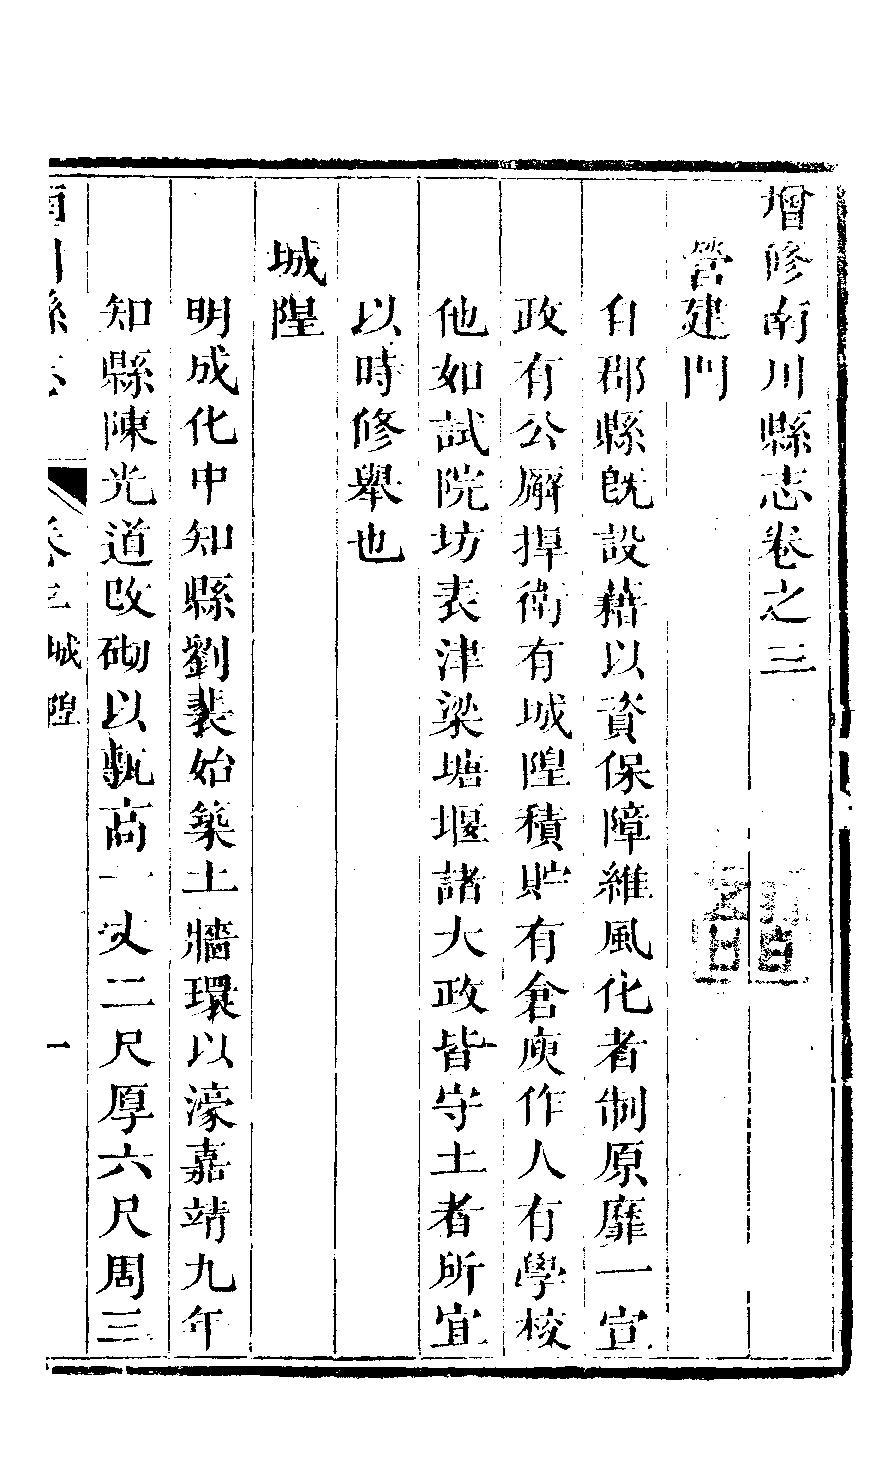 增修南川縣志卷之三
營建門
自郡縣旣設藉以資保障維風化者制原靡一宣
政有公廨捍衛有城隍積貯有倉庾作人有學校
他如試院坊表津梁塘堰諸大政皆守土者所宜
以時修舉也
城隍
明成化中知縣劉裴始築土牆環以濠嘉靖九年
知縣陳光道改砌以甎高一丈二尺厚六尺周三
南川縣志 卷三 城隍 一